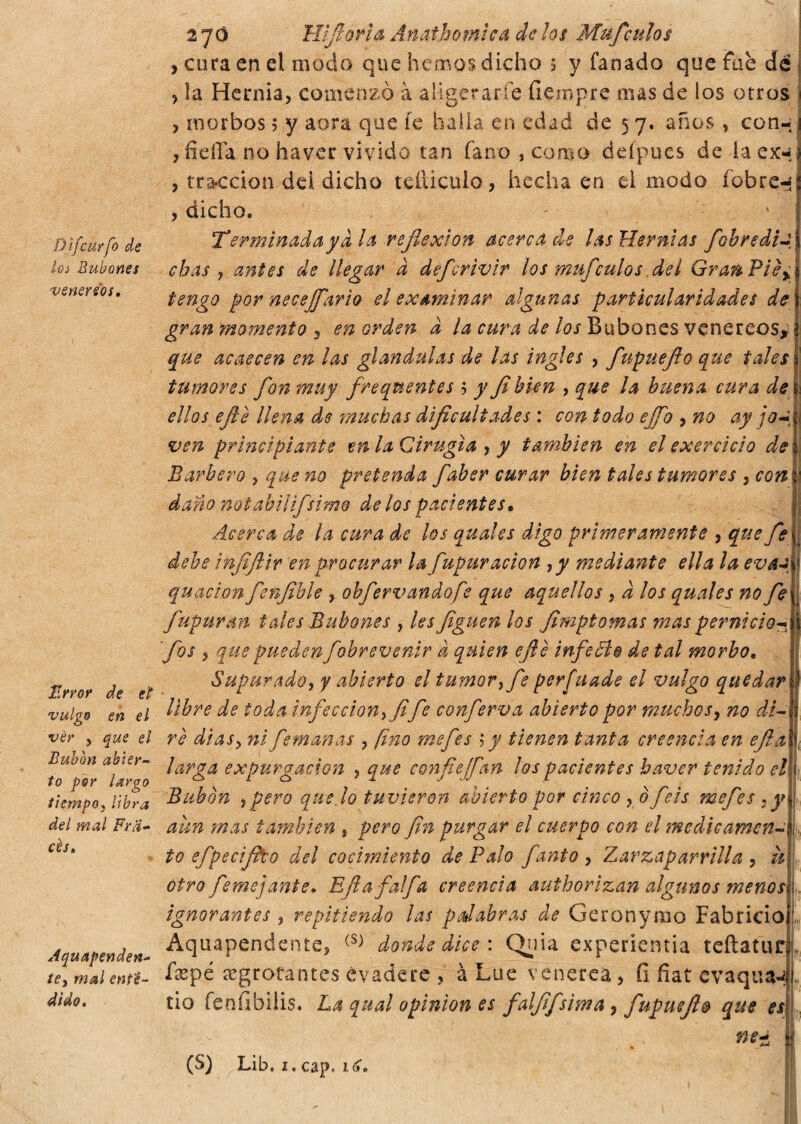 270 Historia Anathomica de los Musculos
, cura en el modo que hemos dicho ; y sanado que fuè de
, la Hernia, comenzò à aligerarse siempre mas de los otros
, morbos ; y aora que se halla en edad de 57. años , con-
, fiessa no haver vivido tan sano , como despues de la ex-
, traccion del dicho testiculo, hecha en el modo sobre-
, dicho.
Discurso de
los Bubones
venereos.
Terminada yà la reflexion acerca de las Hernias sobredi-
chas , antes de llegar à descrivir los musculos del Gran Piè,
tengo por necessario el examinar algunas particularidades de
gran momento , en orden à la cura de los Bubones venereos,
que acaecen en las glandulas de las ingles , supuesto que tales
tumores son muy frequentes ; y si bien , que la buena cura de
ellos estè llena de muchas dificultades : con todo esso , no ay jo-
ven principiante en la Cirugia , y tambien en el exercicio de
Barbero , que no pretenda saber curar bien tales tumores , con
daño notabilissimo de los pacientes.
Acerca de la cura de los quales digo primeramente , que se
debe insistir en procurar la supuracion , y mediante ella la eva-
quacion sensible , observandose que aquellos , à los quales no se
supuran tales Bubones , les siguen los simptomas mas pernicio-
sos , que pueden sobrevenir à quien estè infecto de tal morbo.
Error de el
vulgo en el
vèr , que el
Bubòn abier-
to por largo
tiempo, libra
del mal Fràn-
cès.
Supurado, y abierto el tumor, se persuade el vulgo quedar
libre de toda infeccion, si se conserva abierto por muchos, no di-
rè dias, ni semanas , sino meses ; y tienen tanta creencia en esta
larga expurgacion , que confiessan los pacientes haver tenido el
Bubòn , pero que lo tuvieron abierto por cinco , ò seis meses , y
aùn mas tambien , pero sin purgar el cuerpo con el medicamen-
to especifico del cocimiento de Palo santo , Zarzaparrilla , ù
otro semejante. Esta falsa creencia authorizan algunos menos
ignorantes , repitiendo las palabras de Geronymo Fabricio
Aquapenden-
te, mal enten-
dido.
Aquapendente, (S) donde dice : Quia experientia testatur
sæpè ægrotantes evadere , à Lue venerea, si fiat evaqua-
tio sensibilis. La qual opinion es falsissima , supuesto que es
ne-
(S) Lib. 1. cap. 16.